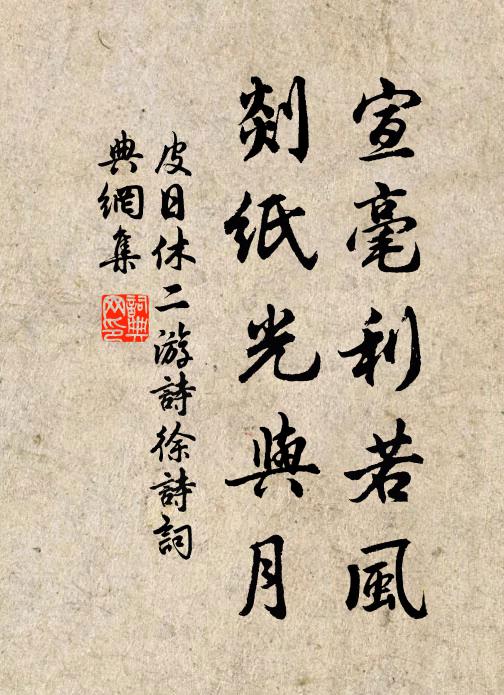 宣毫利若風
剡紙光與月
皮日休二游詩徐詩詞
典網集
詞典網印